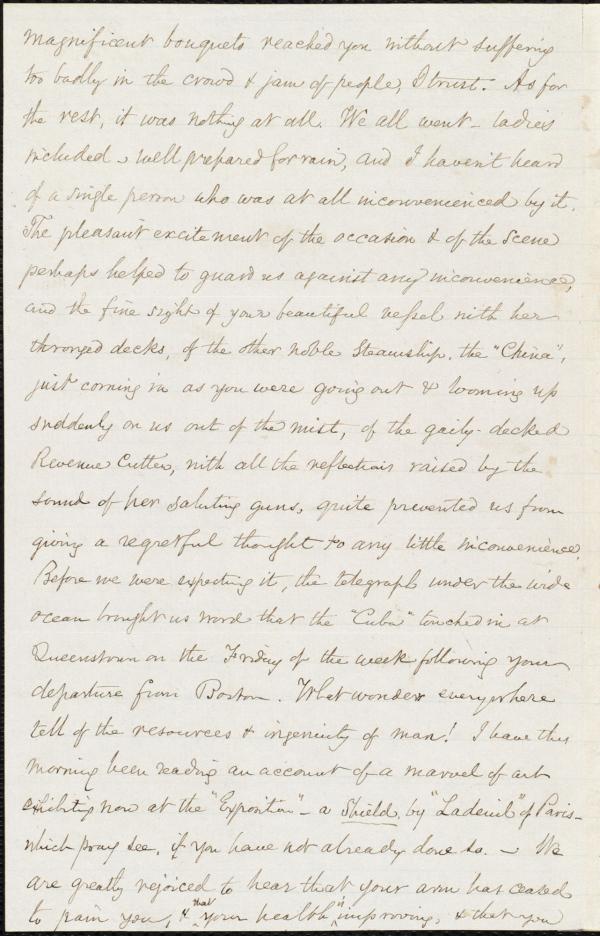 magnificent bouquets reached you without suffering
too badly in the crowd & jam of people, I trust. As for
the rest, it was nothing at all. We all went - ladies
included - well prepared for rain, and I haven't heard
of a single person who was at all inconvenienced by it.
The pleasant excitement of the occasion & of the scene
perhaps helped to guard us against any inconvenience,
and the fine sight of your beautiful vessel with her
thronged decks, of the other noble Steamship, the "China",
just coming in as you were going out & looming up
suddenly on us out of the mist, of the gaily-decked
Revenue Cutter, with all the reflections raised by the
sound of her saluting guns, quite prevented us from
giving a regretful thought to any little inconvenience.
Before we were expecting it, the telegraph under the wide
ocean brought us word that the "Cuba" touched in at
Queenstown on the Friday of the week following your
departure from Boston. What wonders everywhere
tell of the resources & ingenuity of man! I have this
morning been reading an account of a marvel of art
exhibiting now at the "Exposition" - a Shield, by "Ladeuil" of Paris -
which pray see, if you have not already done so. - We
are greatly rejoiced to hear that your arm has ceased
to pain you, & that your health improving, & that you